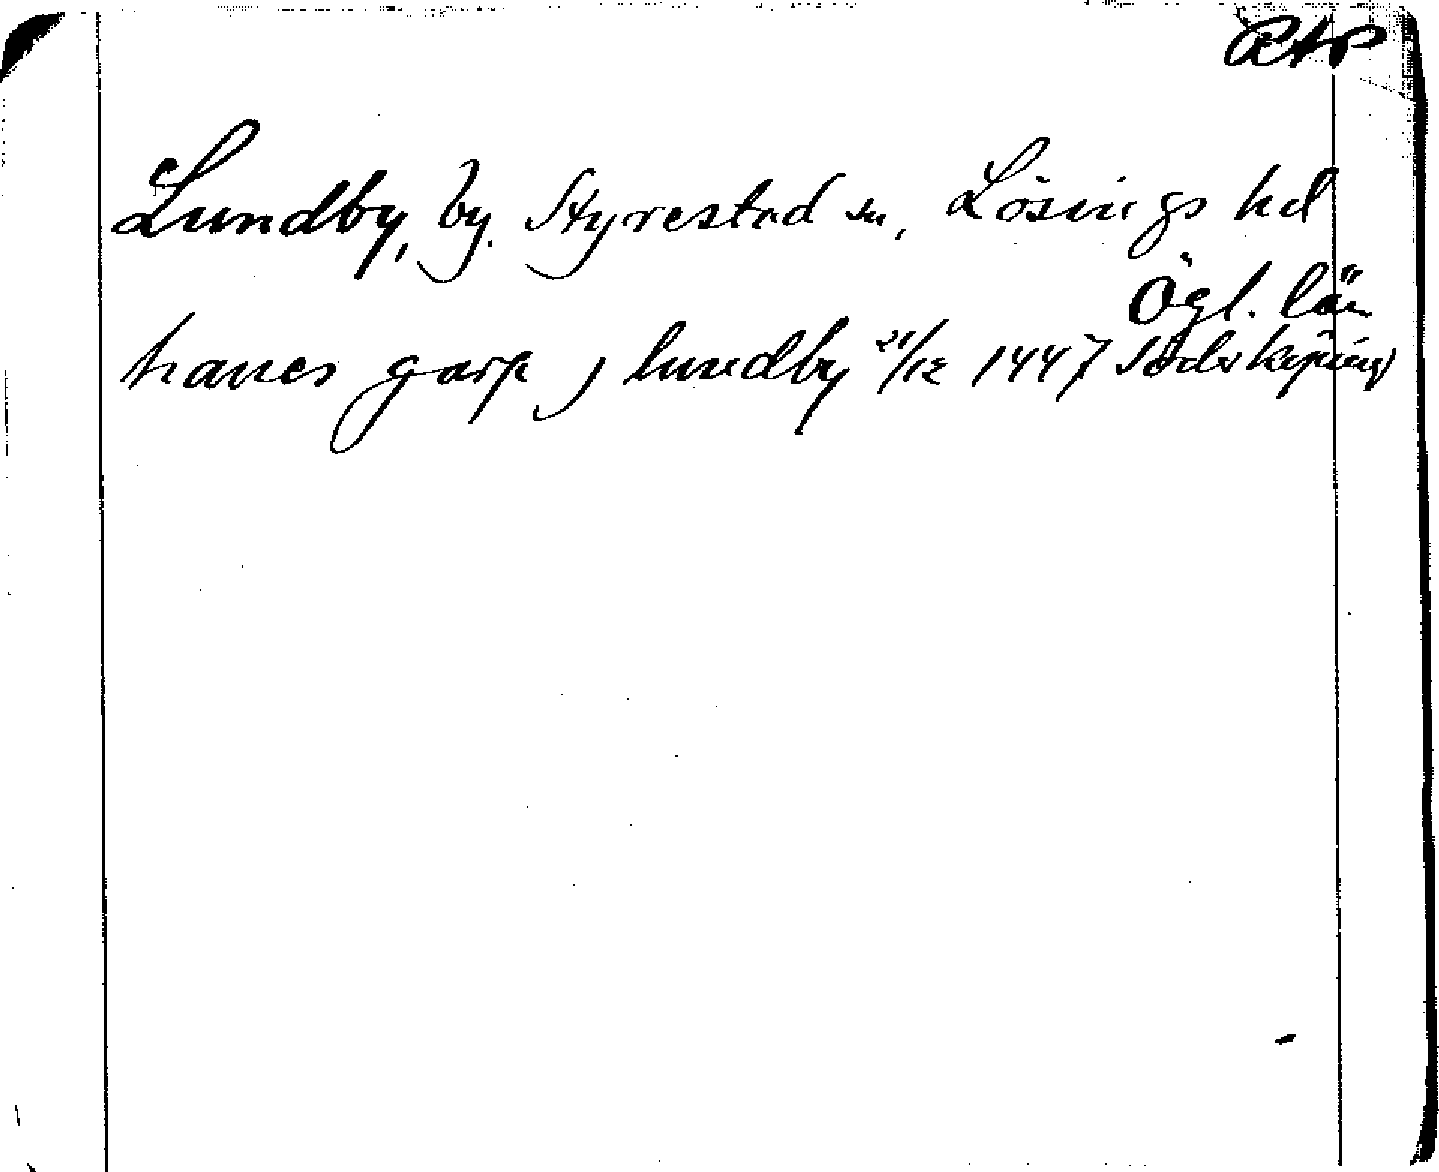 RAP
Lundby, by. Styrestad sn, Lösings hd
Ögl. län
hanes garp j lundby 21/12 1447 Söderköping